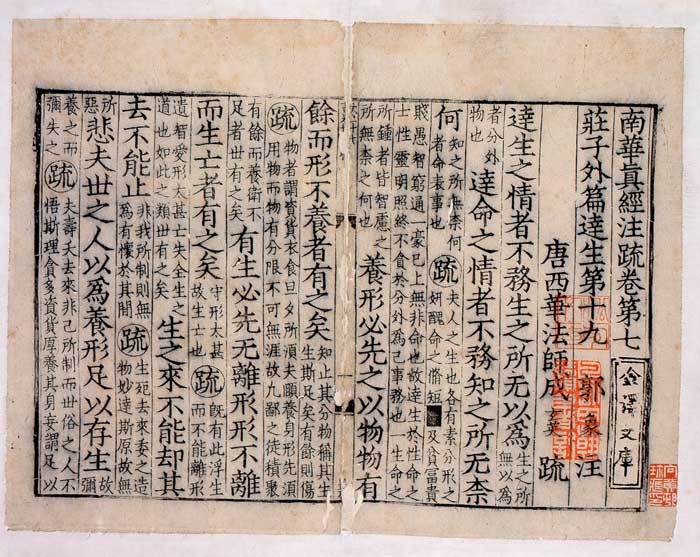 南華真經注疏卷第七
金澤文庫
莊子外篇達生第十九 郭象注
唐西華法師成玄英疏
達生之情者不務生之所无以為 生之所無以為
者分外物也 達命之情者不務知之所无柰
何 知之所無柰何者命表事也 疏 夫人之生也各有素分形之妍醜命之脩短及貧富貴
賤愚智窮通一豪已上無非命也故達生於性命之士性靈明照終不貪於分外為己事務也一生命之
所鍾者皆智慮之所無柰之何也 養形必先之以物物有
餘而形不養者有之矣 知止其分物稱其生生斯足矣有餘則傷
疏 物者謂資貨衣食旦夕所須夫頤養身形先須用物而物有分限不可無涯故凡鄙之徒積聚
有餘而養衛不足者世有之矣 有生必先无離形形不離
而生亡者有之矣 守形太甚故生亡也 疏 既有此浮生而不能離形
遺智愛形太甚亡失全生之道也如此之類世有之矣 生之來不能却其
去不能止 非我所制則無為有懷於其間 疏 生死去來委之造物妙達斯原故無
所惡 悲夫世之人以為養形足以存生 故彌
養之而彌失之 疏 夫壽夭去來非己所制而世俗之人不悟斯理貪多資貨厚養其身妄謂足以